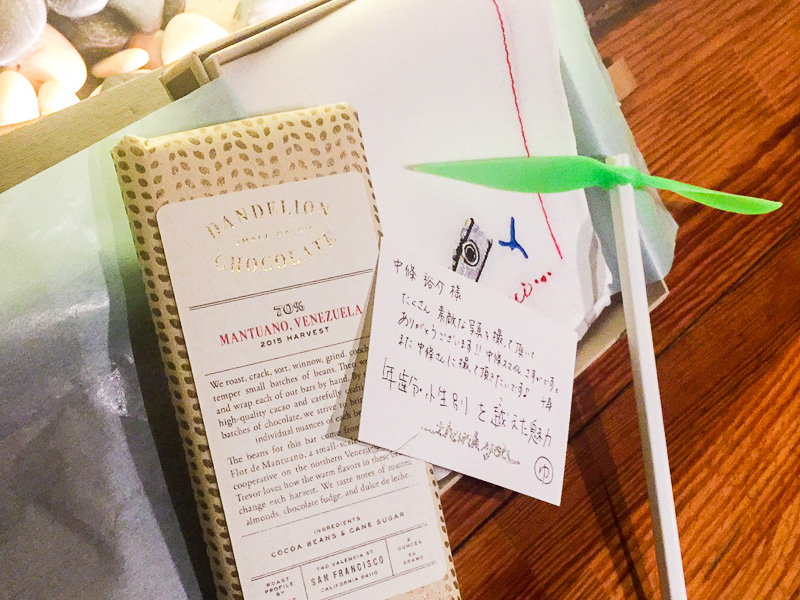 DANDELION
SMALL-BATCH
CHOCOLATE
70%
MANTUANO, VENEZUELA
2015 HARVEST
We roast, crack, sort, winnow, grind, conche
temper small batches of beans. Then we
and wrap each of our bars by hand. By
high-quality cacao and carefully craft
batches of chocolate, we strive to bring
individual nuances of each be
The beans for this bar come from
Flor de Mantuano, a small-scale
cooperative on the northern Venezuel
Trevor loves how the warm flavors in these
change each harvest. We taste notes of roasted
almonds, chocolate fudge, and dulce de leche.
INGREDIENTS
COCOA BEANS & CANE SUGAR
ROAST
PROFILE BY
740 VALENCIA ST
SAN FRANCISCO
CALIFORNIA 94110
2
OUNCES
56
GRAMS
中條 裕介 様
たくさん 素敵な写真を撮って頂いて
ありがとうございます!! 中條さん さすがです!
また中條さんに撮って頂きたいです♪
年齢 性別 を 越えた魅力
ゆ